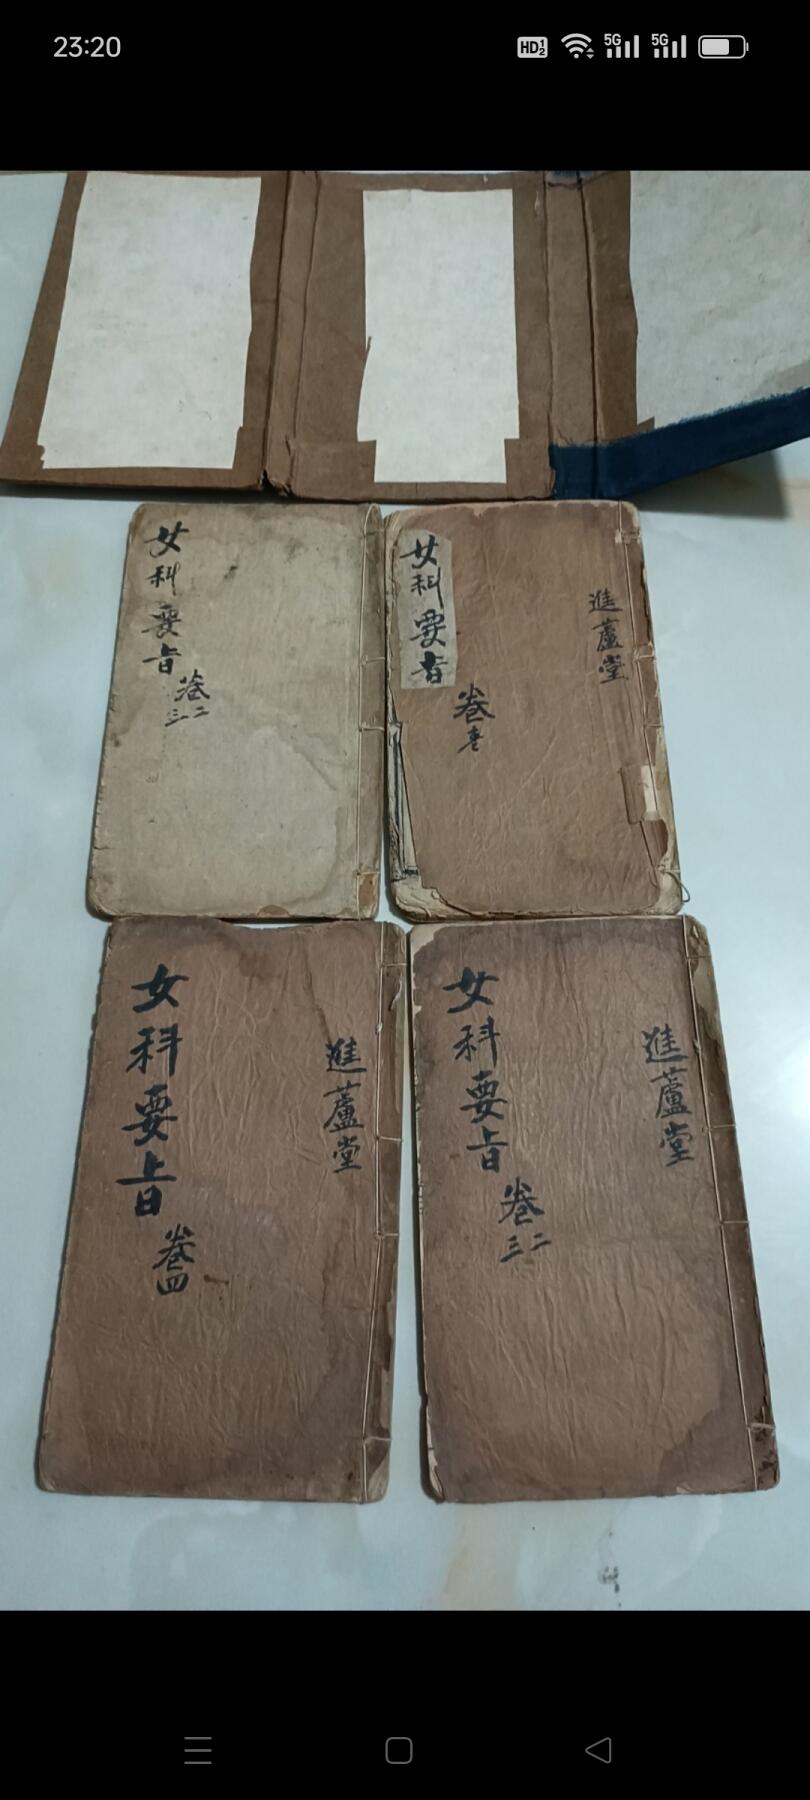 23:20
HD 1 2
5G
5G
女科要旨
卷
二三
女科要旨
卷壹
進蘆堂
女科要旨
卷四
進蘆堂
女科要旨
卷
二三
進蘆堂